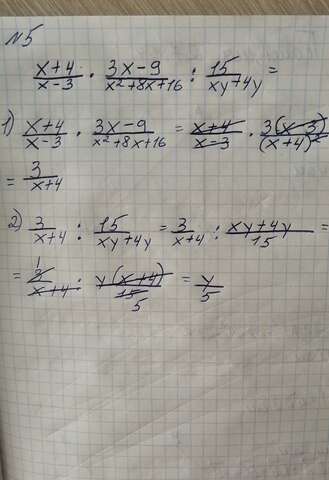 №5
(x+4)/(x-3) · (3x-9)/(x²+8x+16) : 15/(xy+4y) =
1) (x+4)/(x-3) · (3x-9)/(x²+8x+16) = (x+4)/(x-3) · 3(x-3)/(x+4)²
= 3/(x+4)
2) 3/(x+4) : 15/(xy+4y) = 3/(x+4) : (xy+4y)/15 =
= 1 3/(x+4) : y(x+4)/15 5 = y/5